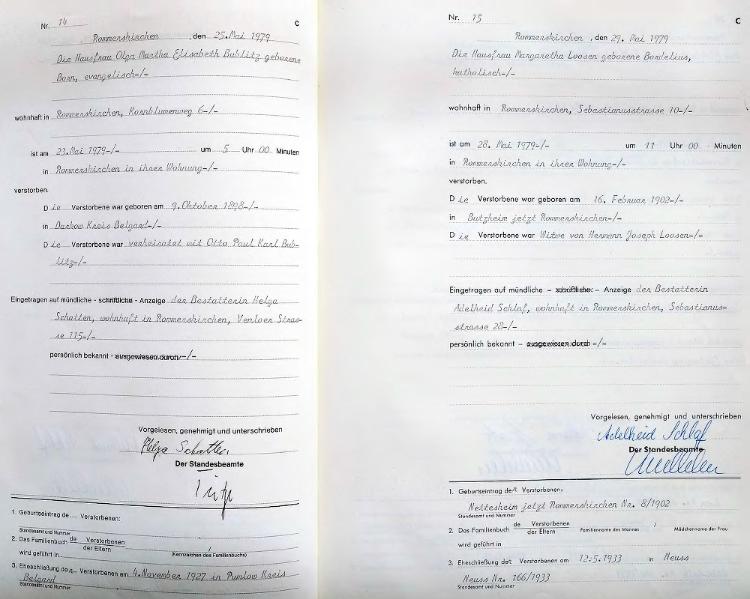 Nr. 14
C
Rommerskirchen, den 25. Mai 1979
Die Hausfrau Olga Martha Elisabeth Bublitz geborene
Born, evangelisch-/-
wohnhaft in Rommerskirchen, Kornblumenweg 6-/-
ist am 23. Mai 1979-/- um 5 Uhr 00 Minuten
in Rommerskirchen in ihrer Wohnung-/-
verstorben.
Die Verstorbene war geboren am 9. Oktober 1898-/-
in Darkow Kreis Belgard-/-
Die Verstorbene war verheiratet mit Otto Paul Karl Bub-
litz-/-
Eingetragen auf mündliche - schriftliche - Anzeige der Bestatterin Helga
Schatten, wohnhaft in Rommerskirchen, Venloer Stras-
se 115-/-
persönlich bekannt - ausgewiesen durch-/-
Vorgelesen, genehmigt und unterschrieben
Helga Schatten
Der Standesbeamte
1. Geburtseintrag de Verstorbenen:
Standesamt und Nummer
2. Das Familienbuch de Verstorbenen
der Eltern
wird geführt in
(Kennzeichen des Familienbuchs)
3. Eheschließung der Verstorbenen am 4. November 1927 in Pumlow Kreis
Belgard
Standesamt und Nummer
Nr. 15
C
Rommerskirchen, den 29. Mai 1979
Die Hausfrau Margaretha Loosen geborene Bordelius,
katholisch-/-
wohnhaft in Rommerskirchen, Sebastianusstrasse 10-/-
ist am 28. Mai 1979-/- um 11 Uhr 00 Minuten
in Rommerskirchen in ihrer Wohnung-/-
verstorben.
Die Verstorbene war geboren am 16. Februar 1902-/-
in Butzheim jetzt Rommerskirchen-/-
Die Verstorbene war Witwe von Hermann Joseph Loosen-/-
Eingetragen auf mündliche - schriftliche - Anzeige der Bestatterin
Adelheid Schlaf, wohnhaft in Rommerskirchen, Sebastianus-
strasse 28-/-
persönlich bekannt - ausgewiesen durch -/-
Vorgelesen, genehmigt und unterschrieben
Adelheid Schlaf
Der Standesbeamte
1. Geburtseintrag der Verstorbenen:
Nettesheim jetzt Rommerskirchen Nr. 8/1902
Standesamt und Nummer
2. Das Familienbuch de Verstorbenen
der Eltern
Familienname des Mannes / Mädchenname der Frau
wird geführt in
3. Eheschließung der Verstorbenen am 12.5.1933 in Neuss
Neuss Nr. 166/1933
Standesamt und Nummer